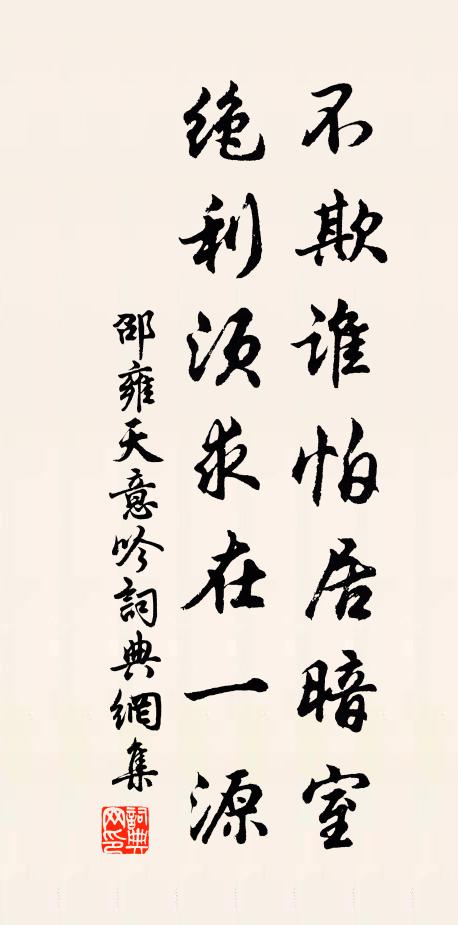 不欺誰怕居暗室
絶利須求在一源
邵雍天意吟詞典網集
詞典網印